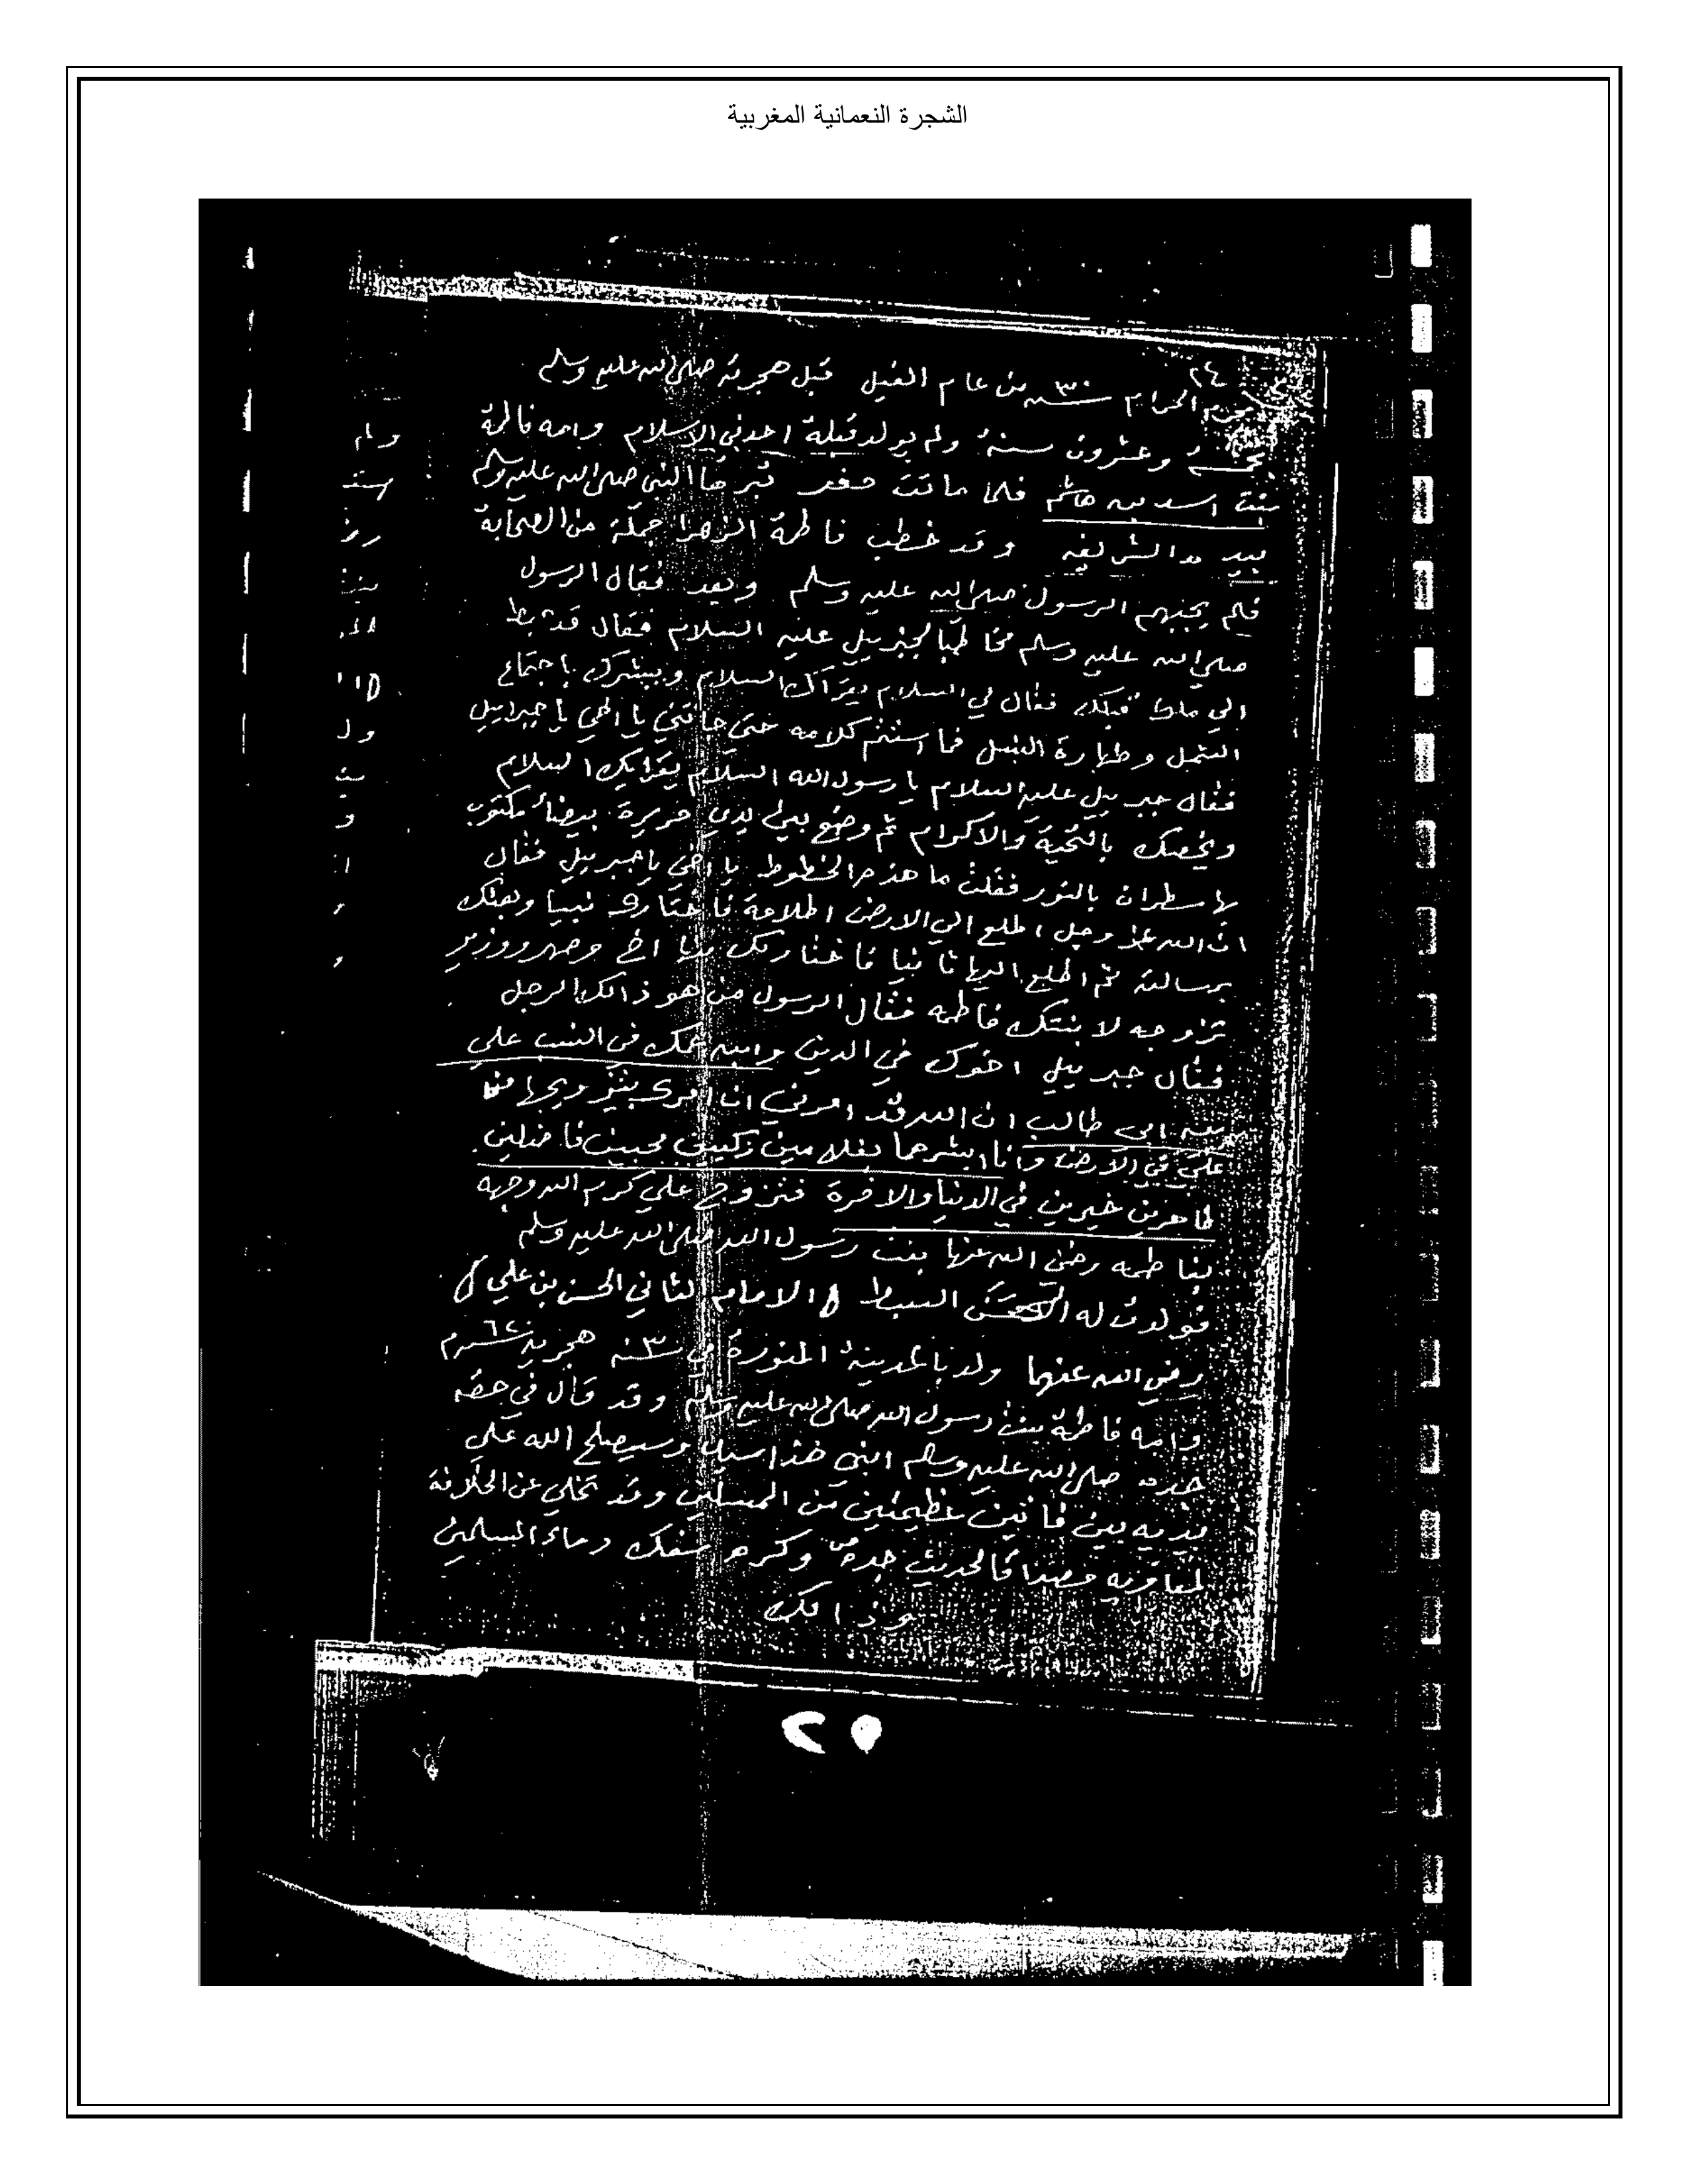 الشجرة النعمانية المغربية
٢٤
محرم الحرام سنة ٣٠ من عام الفيل قبل هجرته صلى الله عليه وسلم
وعشرون سنة ولم يولد قبله احد في الاسلام وامه فاطمة
بنت اسد بن هاشم فلما ماتت قبرها النبي صلى الله عليه وسلم
بيده الشريفه وقد خطب فاطمة الزهرا جملة من الصحابة
فلم يجبهم الرسول صلى الله عليه وسلم وبعد فقال الرسول
صلى الله عليه وسلم مخاطبا لجبريل عليه السلام فقال قد هبط
الي ملك قبلك فقال لي السلام يقرأك السلام ويبشرك باجتماع
الشمل وطهارة النسل فما استتم كلامه حتى جائني يا اخي يا جبرايل
فقال جبرييل عليه السلام يا رسول الله السلام يقرايك السلام
ويخصك بالتحية والاكرام ثم وضع بيدي حريرة بيضأ مكتوب
بها سطران بالنور فقلت ما هذه الخطوط يا اخي يا جبرييل فقال
ان الله عز وجل اطلع الي الارض اطلاعة فاختارك نبيا وبعثك
برسالته ثم اطلع اليها ثانيا فاختار لك منها اخ وصهر ووزير
تزوجه لابنتك فاطمه فقال الرسول من هو ذالك الرجل
فقال جبرييل اخوك في الدين وابن عمك في النسب علي
بن ابي طالب ان الله قد امرني ان امرك بتزويجها من
علي في الارض وانا ابشرهما بغلامين زكيين نجيبين فاضلين
طاهرين خيرين في الدنيا والاخرة فتزوج علي كرم الله وجهه
بفاطمه رضي الله عنها بنت رسول الله صلى الله عليه وسلم
فولدت له الحسن السبط الامام الثاني الحسن بن علي
رضي الله عنهما ولد بالمدينة المنورة في سنة ٣ هجرية
وامه فاطمة بنت رسول الله صلى الله عليه وسلم وقد قال في حقه
جده صلى الله عليه وسلم ابني هذا سيد وسيصلح الله على
يديه بين فئتين عظيمتين من المسلمين وقد تخلي عن الخلافة
لمعاويه مصداقا لحديث جده ص وكره سفك دماء المسلمين
وذالك